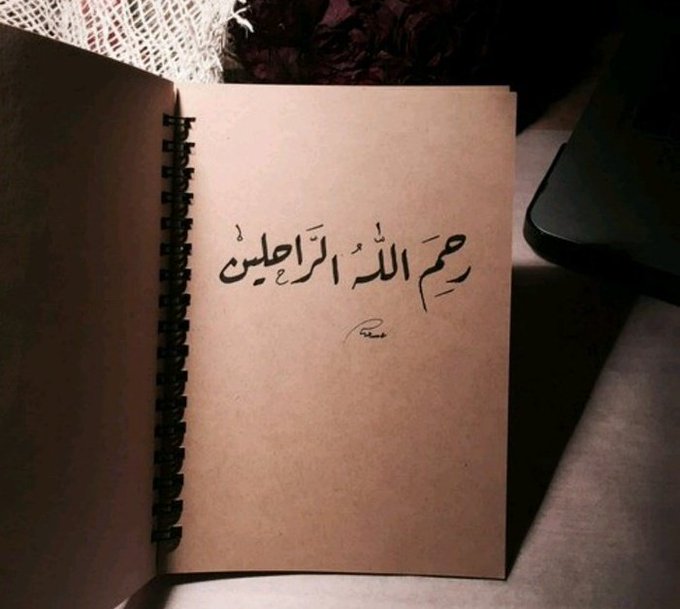 رحِمَ اللّٰهُ الرَّاحلين